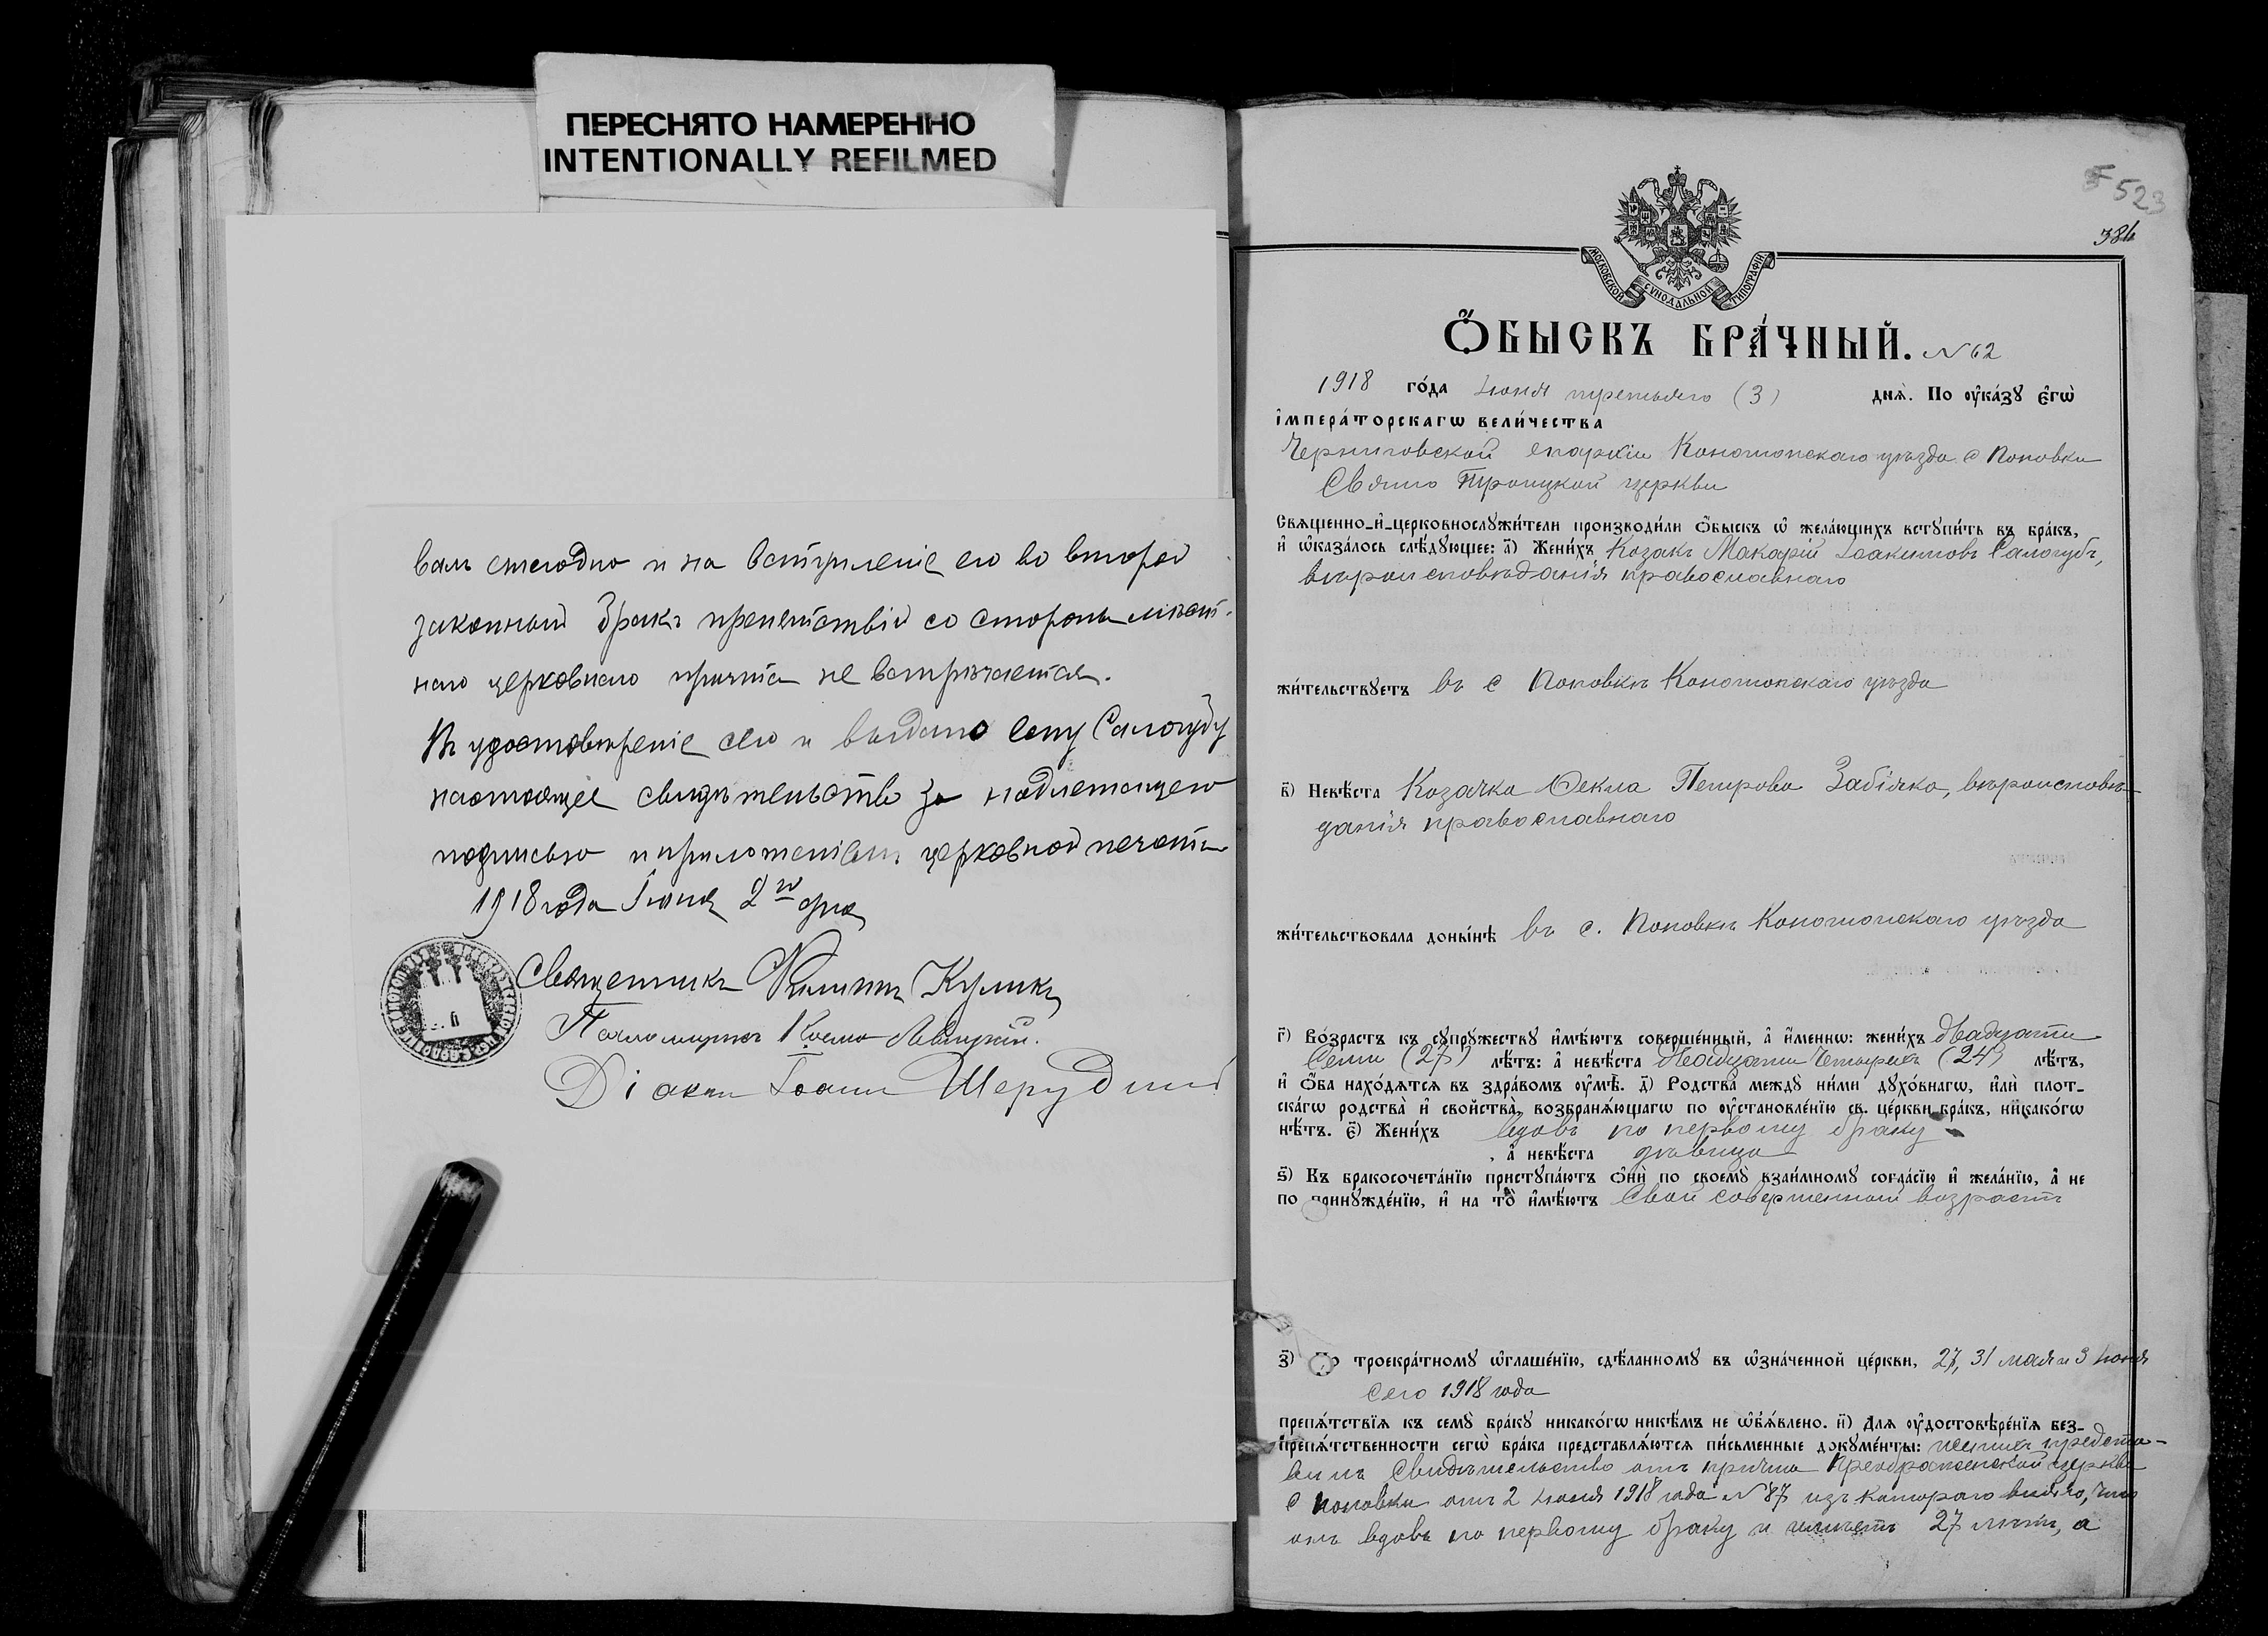 ПЕРЕСНЯТО НАМЕРЕННО
INTENTIONALLY REFILMED
валъ ежегодно и на вступленіе его во второй
законный бракъ препятствій со стороны мѣст-
наго церковнаго причта не встрѣчается.
Въ удостовѣреніе сего и выдано сему Салогубу
настоящее свидѣтельство за надлежащею
подписью и приложеніемъ церковной печати
1918 года Іюня 2го дня
Священникъ Филиппъ Куликъ
Псаломщикъ Косма Левицкій.
Діаконъ Іоаннъ Шерудило
523
386
МОСКОВСКОЙ СѴНОДАЛЬНОЙ ТИПОГРАФІИ
Ѻ҆БЫСКЪ БРА́ЧНЫЙ. N 62
1918 го́да Іюня третьяго (3) днѧ̀. По ᲂу҆ка́зꙋ є҆гѡ̀
і҆мпера́торскагѡ вели́чества
Черниговской епархіи Конотопскаго уѣзда с Поповки
Свято Троицкой церкви
Свѧще́нно-и҆-церковнослꙋжи́тели производи́ли ѻ҆́быскъ ѡ҆ жела́ющихъ встꙋпи́ть въ бра́къ,
и҆ ѡ҆каза́лось слѣ́дꙋющее: а҃) Жени́хъ Козакъ Макарій Іоакимовъ Салогубъ,
вѣроисповѣданія православнаго
жи́тельствꙋетъ въ с Поповкѣ Конотопскаго уѣзда
в҃) Невѣ́ста Козачка Ѳекла Петрова Забіяка, вѣроисповѣ-
данія православнаго
жи́тельствовала доны́нѣ въ с. Поповкѣ Конотопскаго уѣзда
г҃) Во́зрастъ къ сꙋпрꙋ́жествꙋ и҆мѣ́ютъ соверше́нный, а҆ и҆́менно: жени́хъ двадцати
семи (27) лѣ́тъ: а҆ невѣ́ста двадцати четырехъ (24) лѣ́тъ,
и҆ ѻ҆́ба нахо́дѧтсѧ въ здра́вомъ ᲂу҆мѣ̀. д҃) Родства̀ междꙋ̀ ни́ми дꙋхо́внагѡ, и҆лѝ плот-
ска́гѡ родства̀ и҆ свойства̀, возбранѧ́ющагѡ по ᲂу҆становле́нїю св. це́ркви бра́къ, никако́гѡ
нѣ́тъ. є҃) Жени́хъ вдовъ по первому браку
, а҆ невѣ́ста дѣвица
ѕ҃) Къ бракосочета́нїю пристꙋпа́ютъ ѻ҆нѝ по своемꙋ̀ взаи́мномꙋ согла́сїю и҆ жела́нїю, а҆ не
по принꙋжде́нїю, и҆ на то̀ и҆мѣ́ютъ свой совершенный возрастъ
з҃) По троекра́тномꙋ ѡ҆глаше́нїю, сдѣ́ланномꙋ въ ѡ҆зна́ченной це́ркви, 27, 31 мая и 3 Іюня
сего 1918 года
препѧ́тствїѧ къ семꙋ̀ бра́кꙋ никако́гѡ никѣ́мъ не ѡ҆б̾ѧ́влено. и҃) Для ᲂу҆достовѣре́нїѧ без-
препѧ́тственности сегѡ̀ бра́ка представлѧ́ютсѧ пи́сьменные докꙋме́нты: женихъ предста-
вилъ свидѣтельство отъ причта Преображенской церкви
с Поповки отъ 2 Іюня 1918 года N 87 изъ котораго видно, что
онъ вдовъ по первому браку и имѣетъ 27 лѣтъ, а